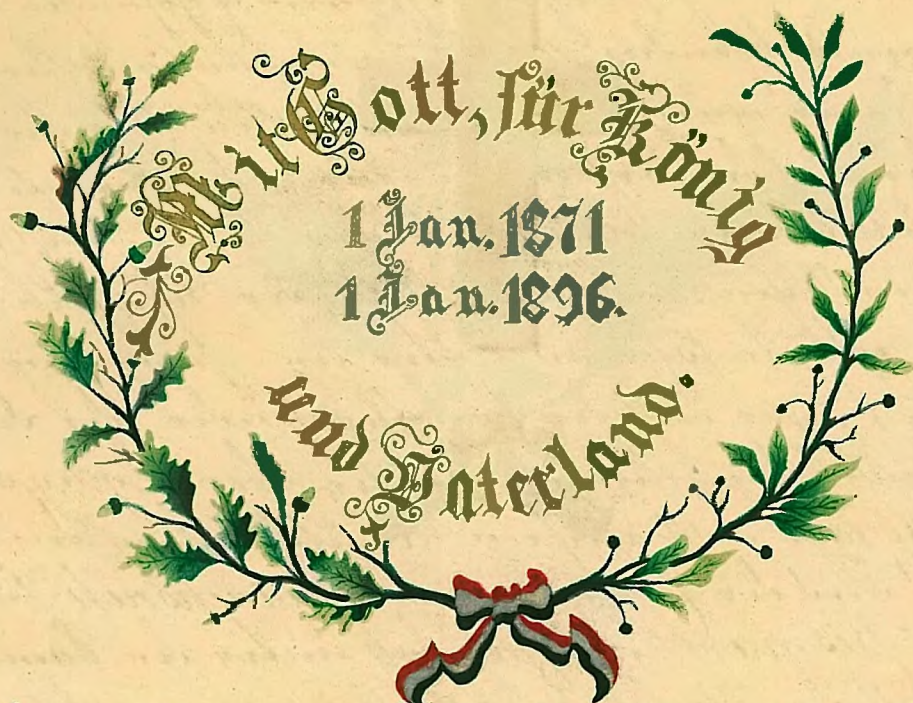 Mit Gott, für König
1 Jan. 1871
1 Jan. 1896.
und Vaterland.